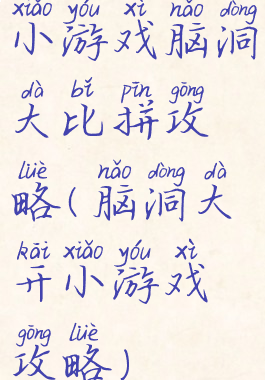 xiǎo yóu xì nǎo dòng
小游戏脑洞
dà bǐ pīn gōng
大比拼攻
lüè nǎo dòng dà
略(脑洞大
kāi xiǎo yóu xì
开小游戏
gōng lüè
攻略)